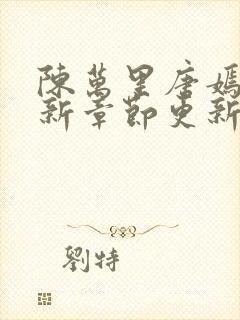 陳萬里唐嫣
新章節更新
劉特